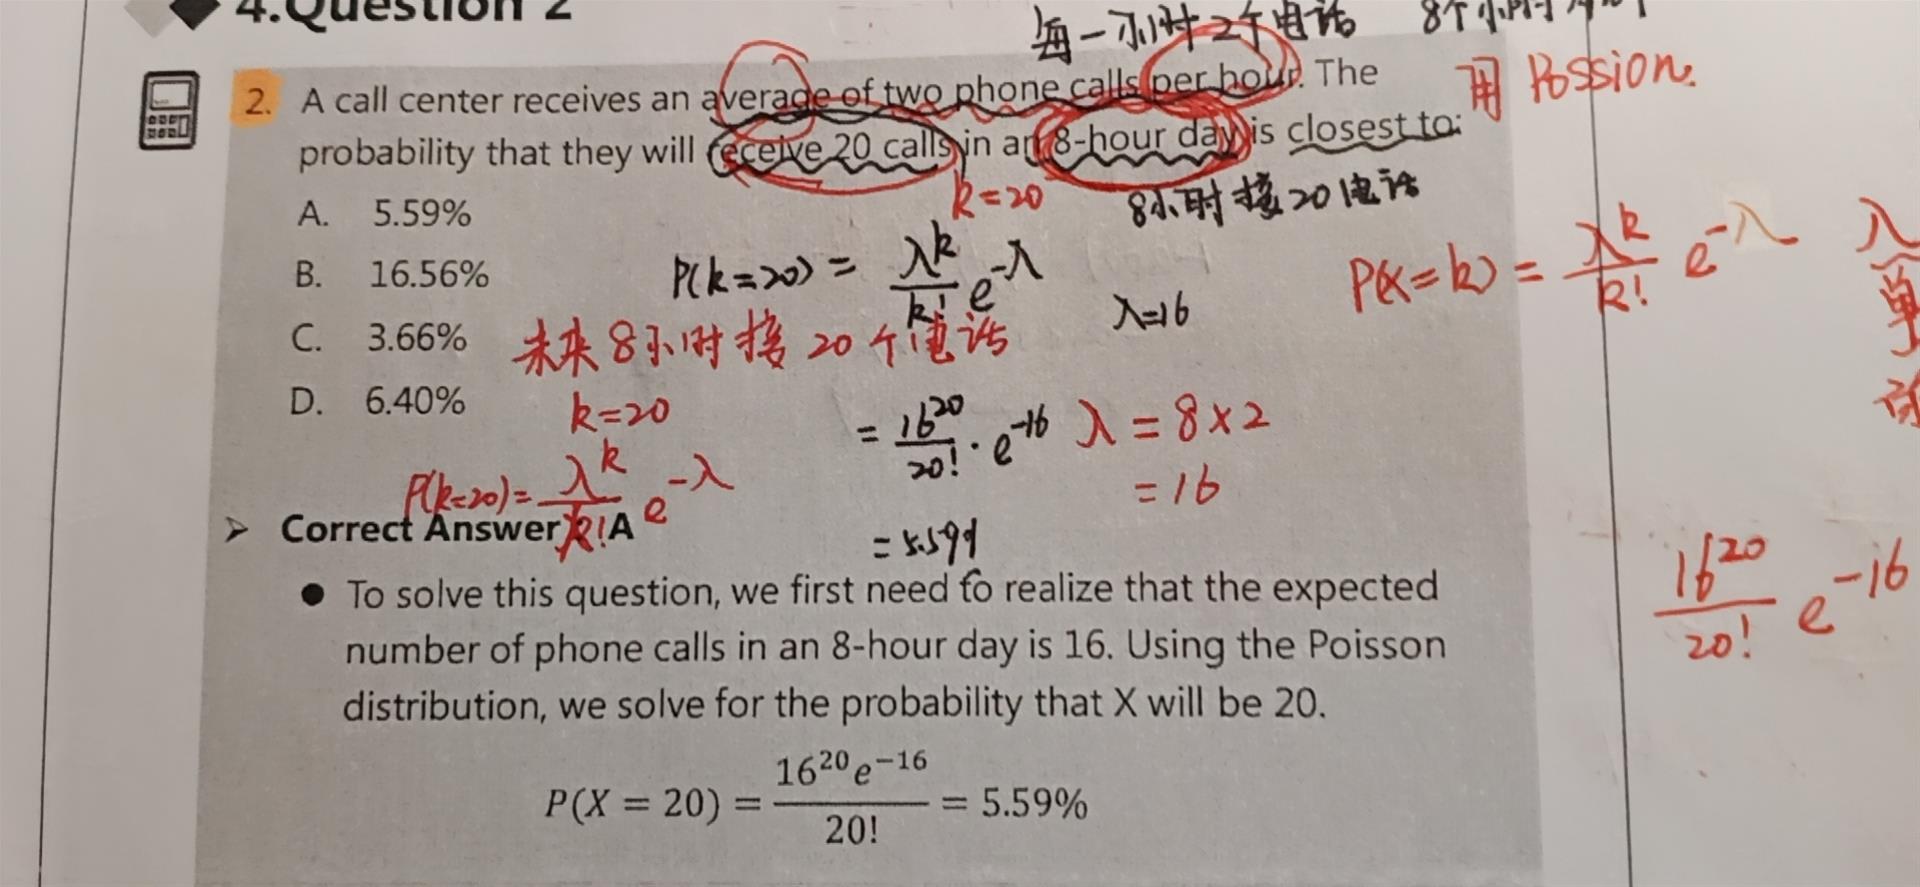 4.Question 2
每一小时2个电话 8个小时
2. A call center receives an average of two phone calls per hour. The
用 Possion.
probability that they will receive 20 calls in an 8-hour day is closest to:
k=20
8小时接20电话
A. 5.59%
P(k=20) = λ^k/k! e^-λ
P(x=k) = λ^k/k! e^-λ λ
单
B. 16.56%
λ=16
C. 3.66%
未来8小时接20个电话
D. 6.40%
k=20
= 16^20/20! · e^-16
λ = 8×2
= 16
P(k=20)= λ^k/k! e^-λ
Correct Answer: A
= 5.59%
16^20/20! e^-16
● To solve this question, we first need to realize that the expected
number of phone calls in an 8-hour day is 16. Using the Poisson
distribution, we solve for the probability that X will be 20.
P(X = 20) = 16^20 e^−16 / 20! = 5.59%